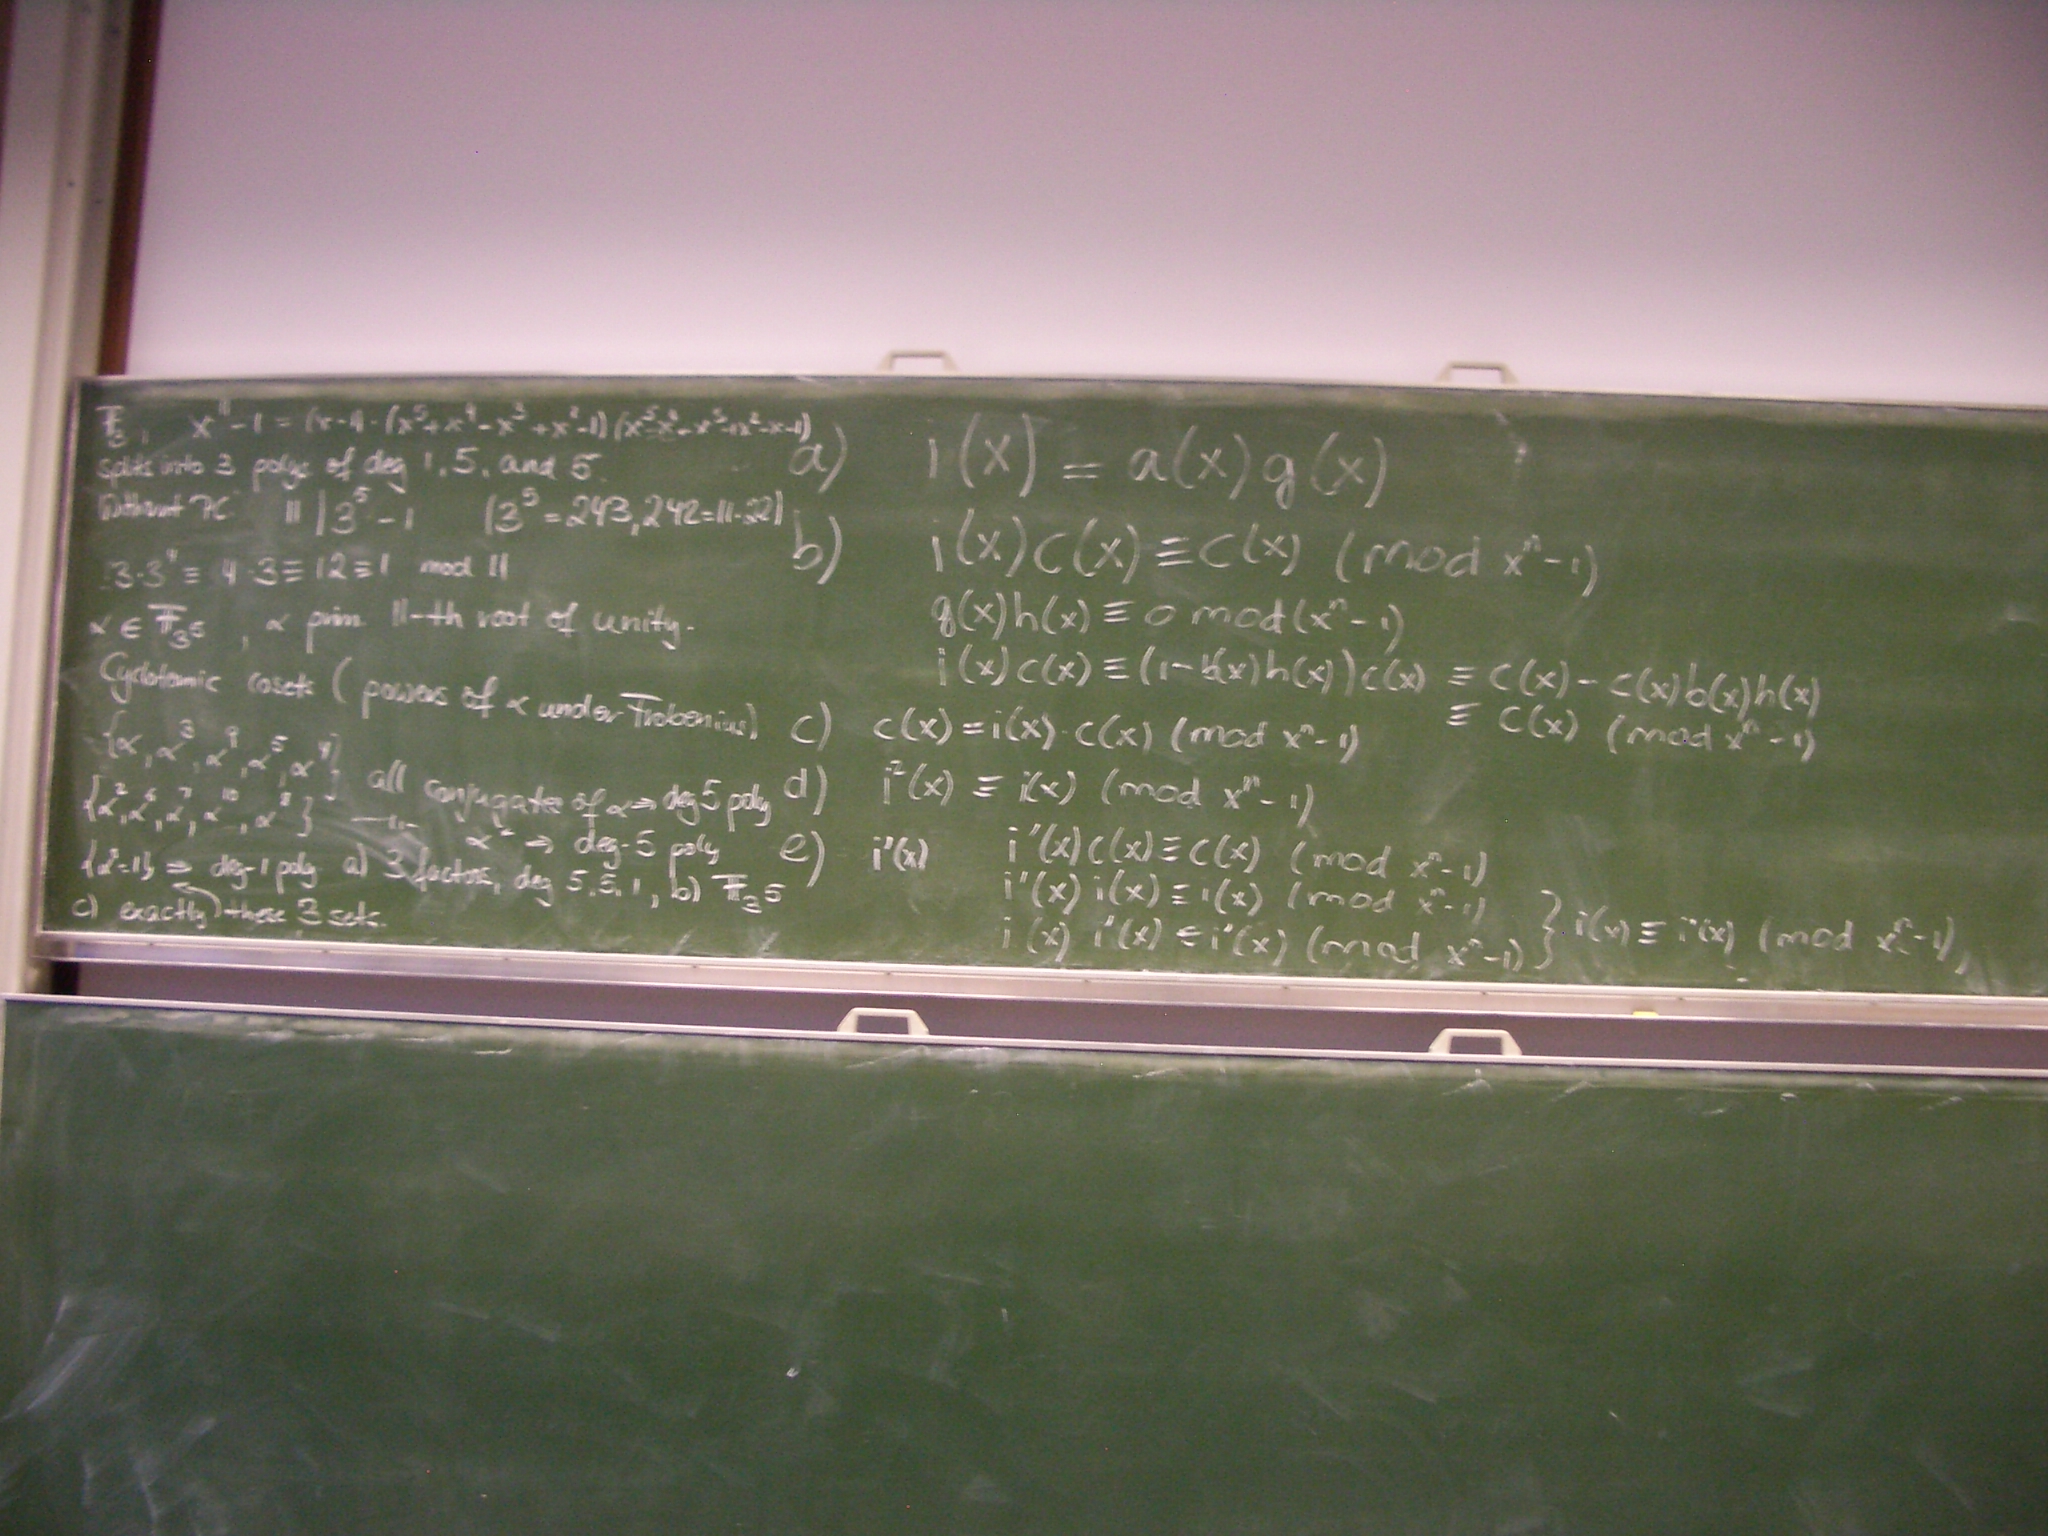 F₃, x¹¹-1 = (x-1)·(x⁵+x⁴-x³+x²-1)(x⁵-x³+x²-x-1)
splits into 3 polys of deg 1, 5, and 5.
Without 11 | 3⁵-1 (3⁵=243, 242=11·22)
3·3⁴ ≡ 4·3 ≡ 12 ≡ 1 mod 11
α ∈ F₃⁵, α prim 11-th root of unity.
Cyclotomic cosets (powers of α under Frobenius)
{α, α³, α⁹, α⁵, α⁴} all conjugates of α ⇒ deg 5 poly
{α², α⁶, α⁷, α¹⁰, α⁸} —"— α² ⇒ deg-5 poly
{α⁰=1} ⇒ deg-1 poly a) 3 factors, deg 5,5,1, b) F₃⁵
c) exactly these 3 sets.
a) i(x) = a(x)g(x)
b) i(x)c(x) ≡ c(x) (mod xⁿ-1)
g(x)h(x) ≡ 0 mod (xⁿ-1)
i(x)c(x) ≡ (1-b(x)h(x))c(x) ≡ c(x) - c(x)b(x)h(x)
≡ c(x) (mod xⁿ-1)
c) c(x) = i(x)·c(x) (mod xⁿ-1)
d) i²(x) ≡ i(x) (mod xⁿ-1)
e) i'(x) i'(x)c(x) ≡ c(x) (mod xⁿ-1)
i'(x) i(x) ≡ i(x) (mod xⁿ-1)
i(x) i'(x) ≡ i'(x) (mod xⁿ-1) } i(x) ≡ i'(x) (mod xⁿ-1)